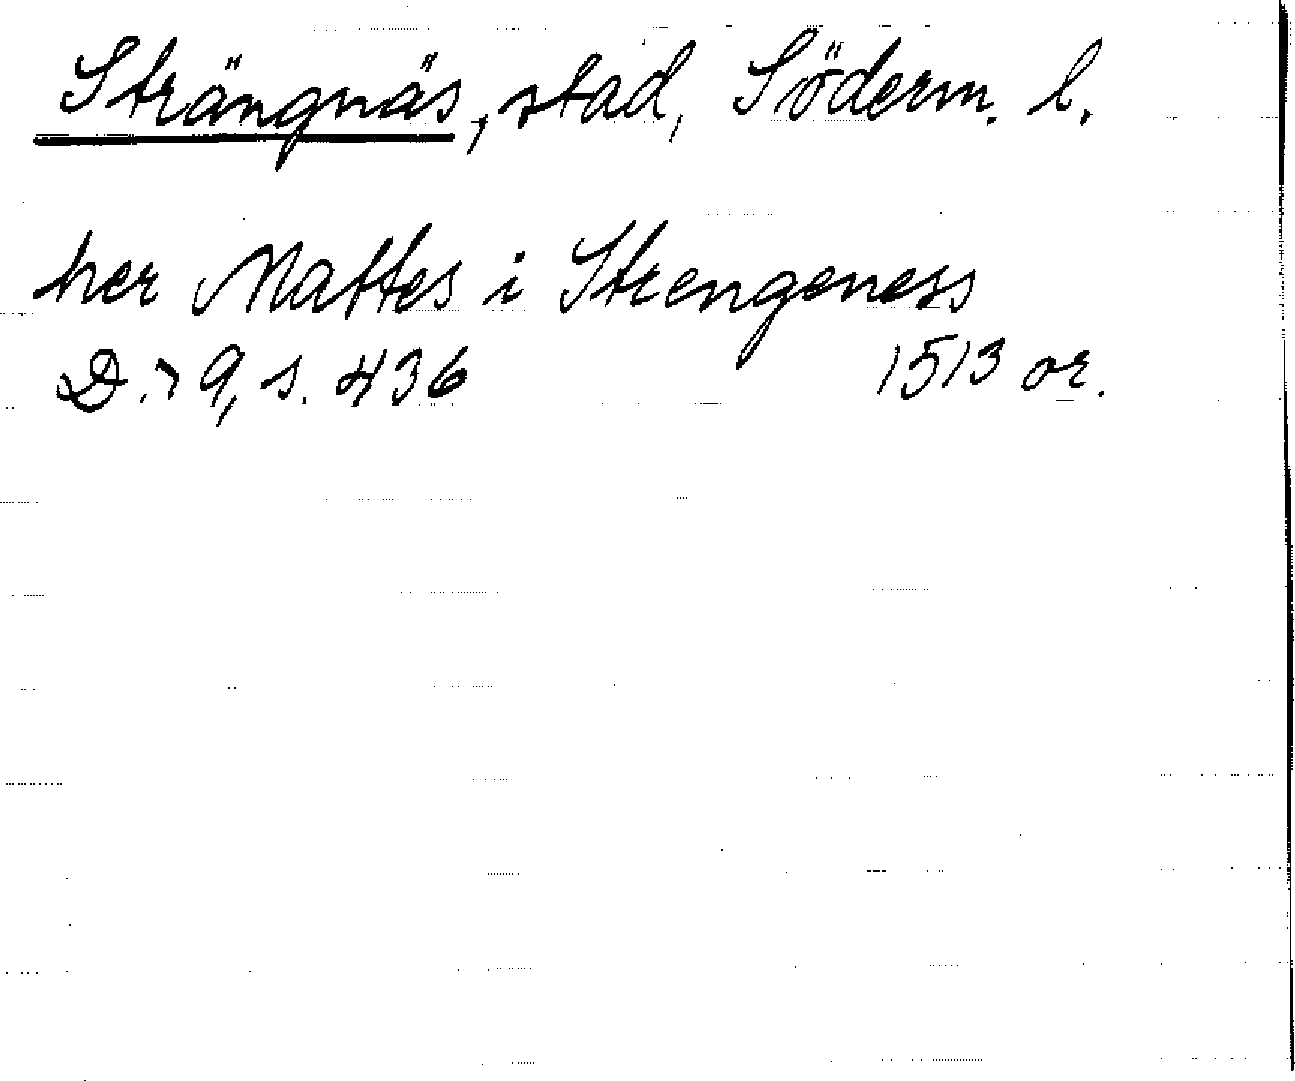 Strängnäs, stad, Söderm. l.
her Mattes i Strengeness
D. 9, s. 436 1513 or.